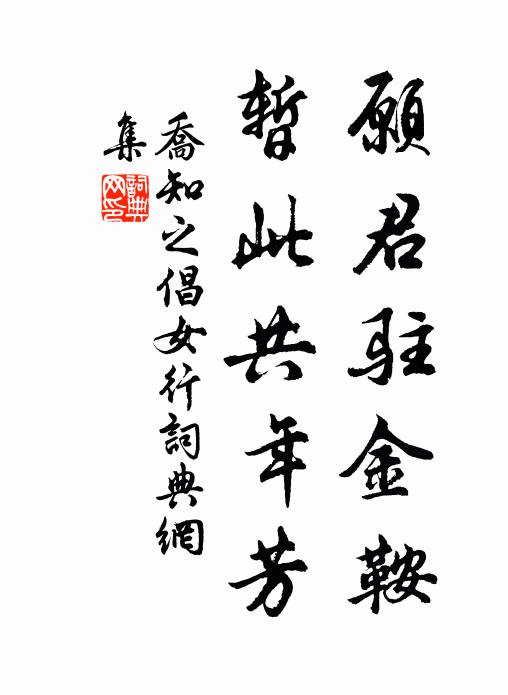 願君駐金鞍
暫此共年芳
喬知之倡女行詞典網
集
詞典
网印